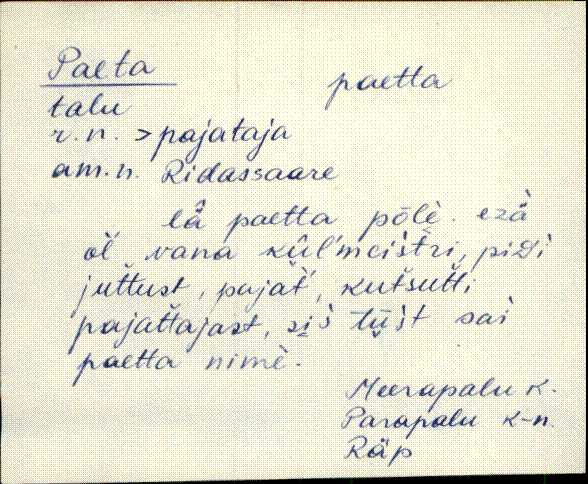 Paeta paetta
talu
r.n. > pajataja
am.n. Ridassaare
lä̂ paetta põlè. ezä̀
oĺ vana kûĺmeištri, pidì
juťtust, pajať, kutšuťti
pajaťtajast, siš tüjst sai
paetta nimè.
Meerapalu k.
Parapalu k-n.
Räp